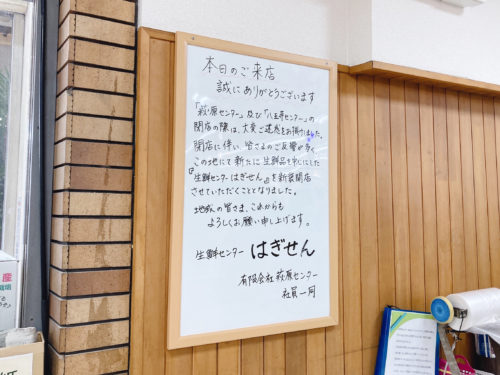 本日のご来店
誠にありがとうございます
「萩原センター」及び「八王寺センター」の
閉店の際は、大変ご迷惑をお掛けしました。
閉店に伴い、皆さまのご反響が多く
この地にて新たに生鮮品を中心にした
『生鮮センターはぎせん』を新装開店
させていただくこととなりました。
地域の皆さま、これからも
よろしくお願い申し上げます。
生鮮センター はぎせん
有限会社 萩原センター
社員一同
産